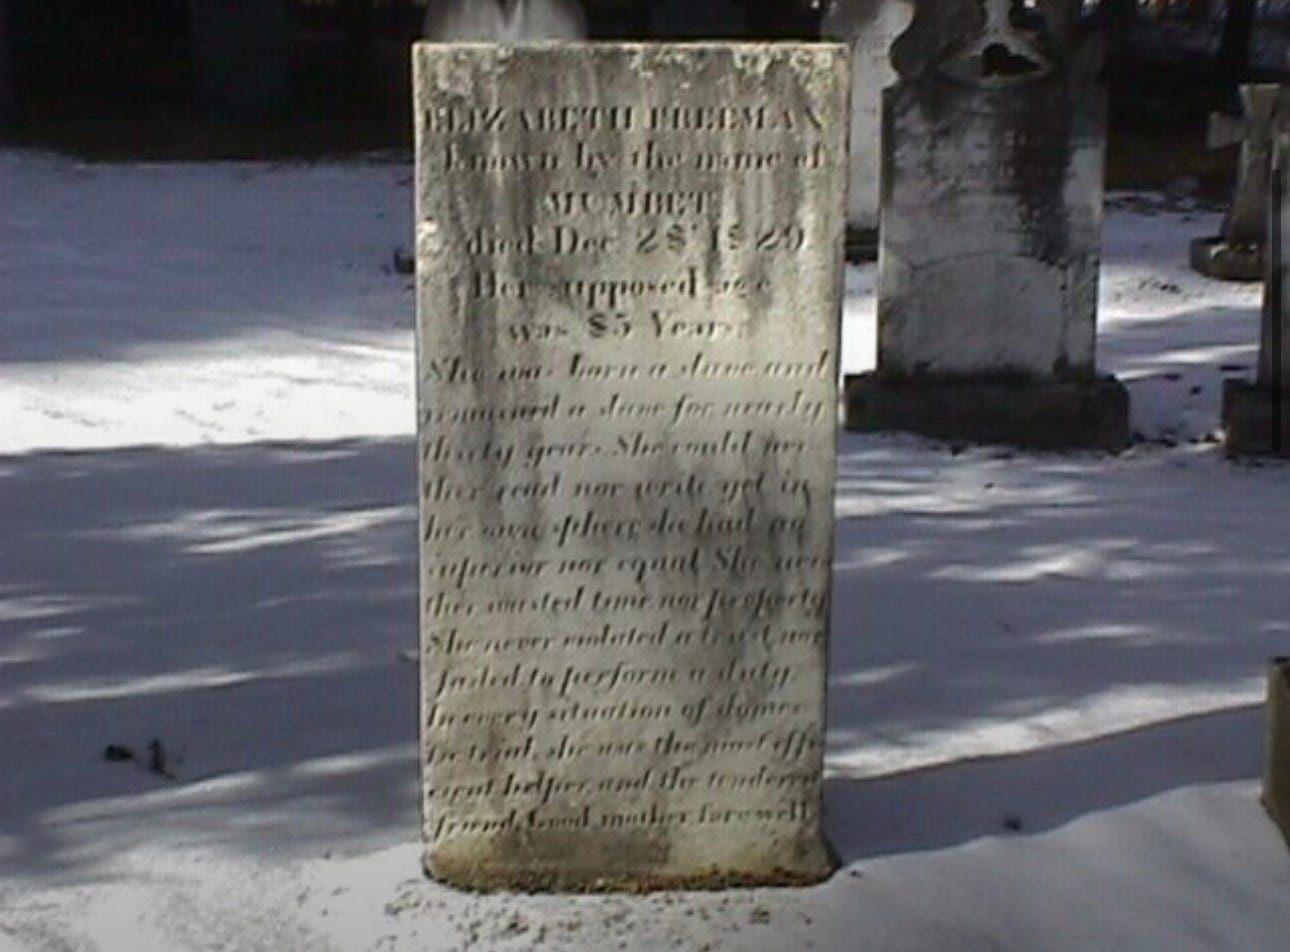 ELIZABETH FREEMAN
known by the name of
MUMBET
died Dec 28 1829
Her supposed age
was 85 Years.
She was born a slave and
remained a slave for nearly
thirty years. She could nei
ther read nor write yet in
her own sphere she had no
superior nor equal She nei
ther wasted time nor property
She never violated a trust nor
failed to perform a duty
In every situation of domes
tic trial, she was the most effi
cient helper, and the tenderest
friend. Good mother farewell